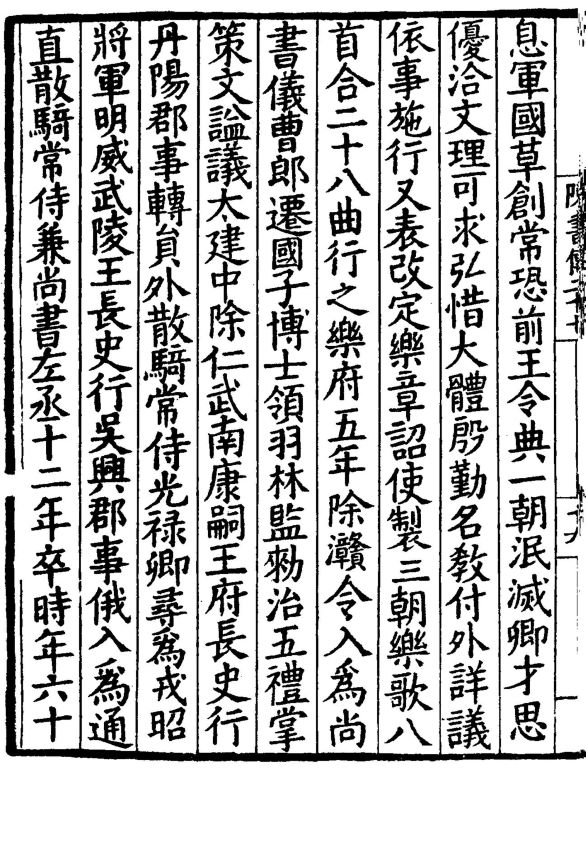 息軍國草創常恐前王令典一朝泯滅卿才思
優洽文理可求弘惜大體殷勤名教付外詳議
依事施行又表改定樂章詔使製三朝樂歌八
首合二十八曲行之樂府五年除灨令入爲尚
書儀曹郎遷國子博士領羽林監勑治五禮掌
策文謚議太建中除仁武南康嗣王府長史行
丹陽郡事轉貟外散騎常侍光禄卿尋爲戎昭
將軍明威武陵王長史行吳興郡事俄入爲通
直散騎常侍兼尚書左丞十二年卒時年六十